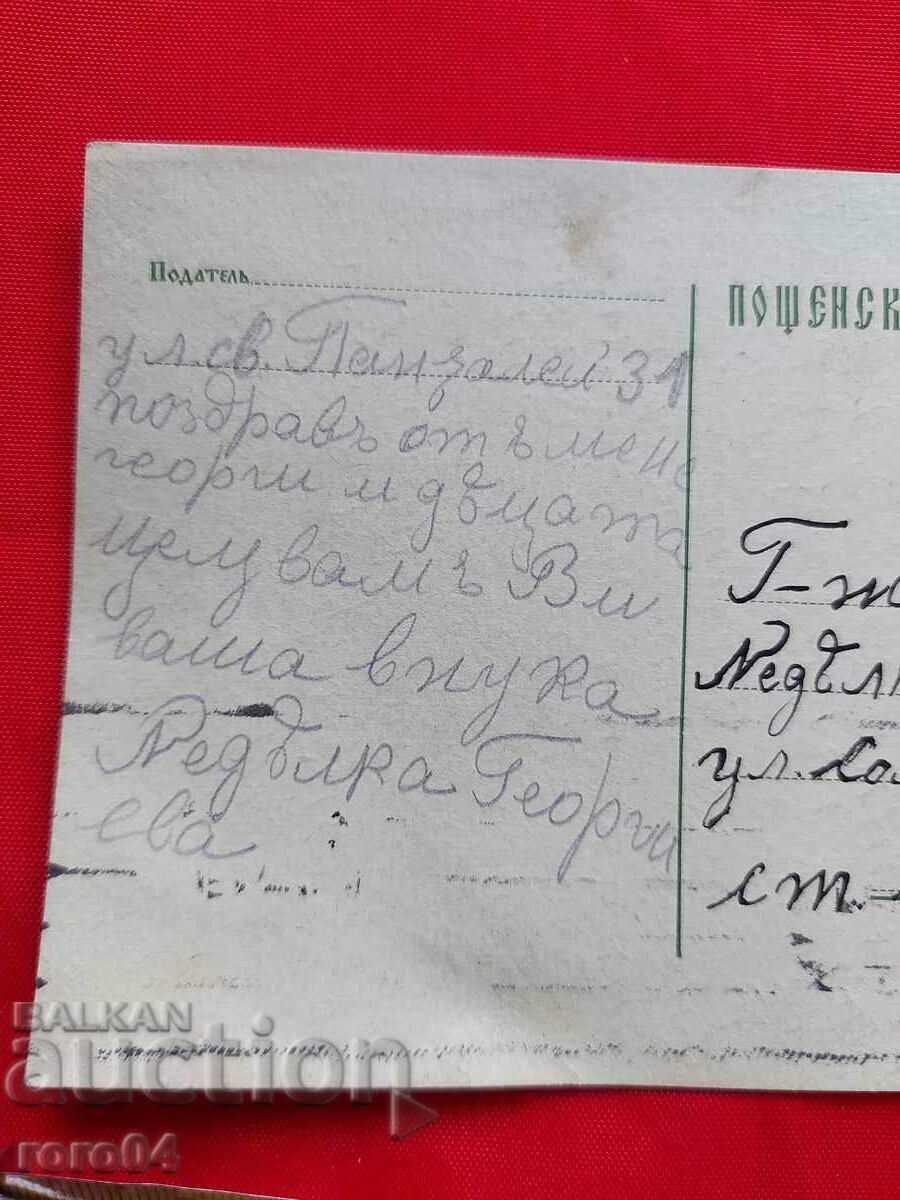 Податель
ул. св. Панталей 31
поздравъ отъ мене
георги и дѣцата
целувамъ Ви
ваша внука
Недѣлка Георги
ева
ПОЩЕНСК
Г-ж
Недѣл
ул.
ст.-
BALKAN
auction
roro04